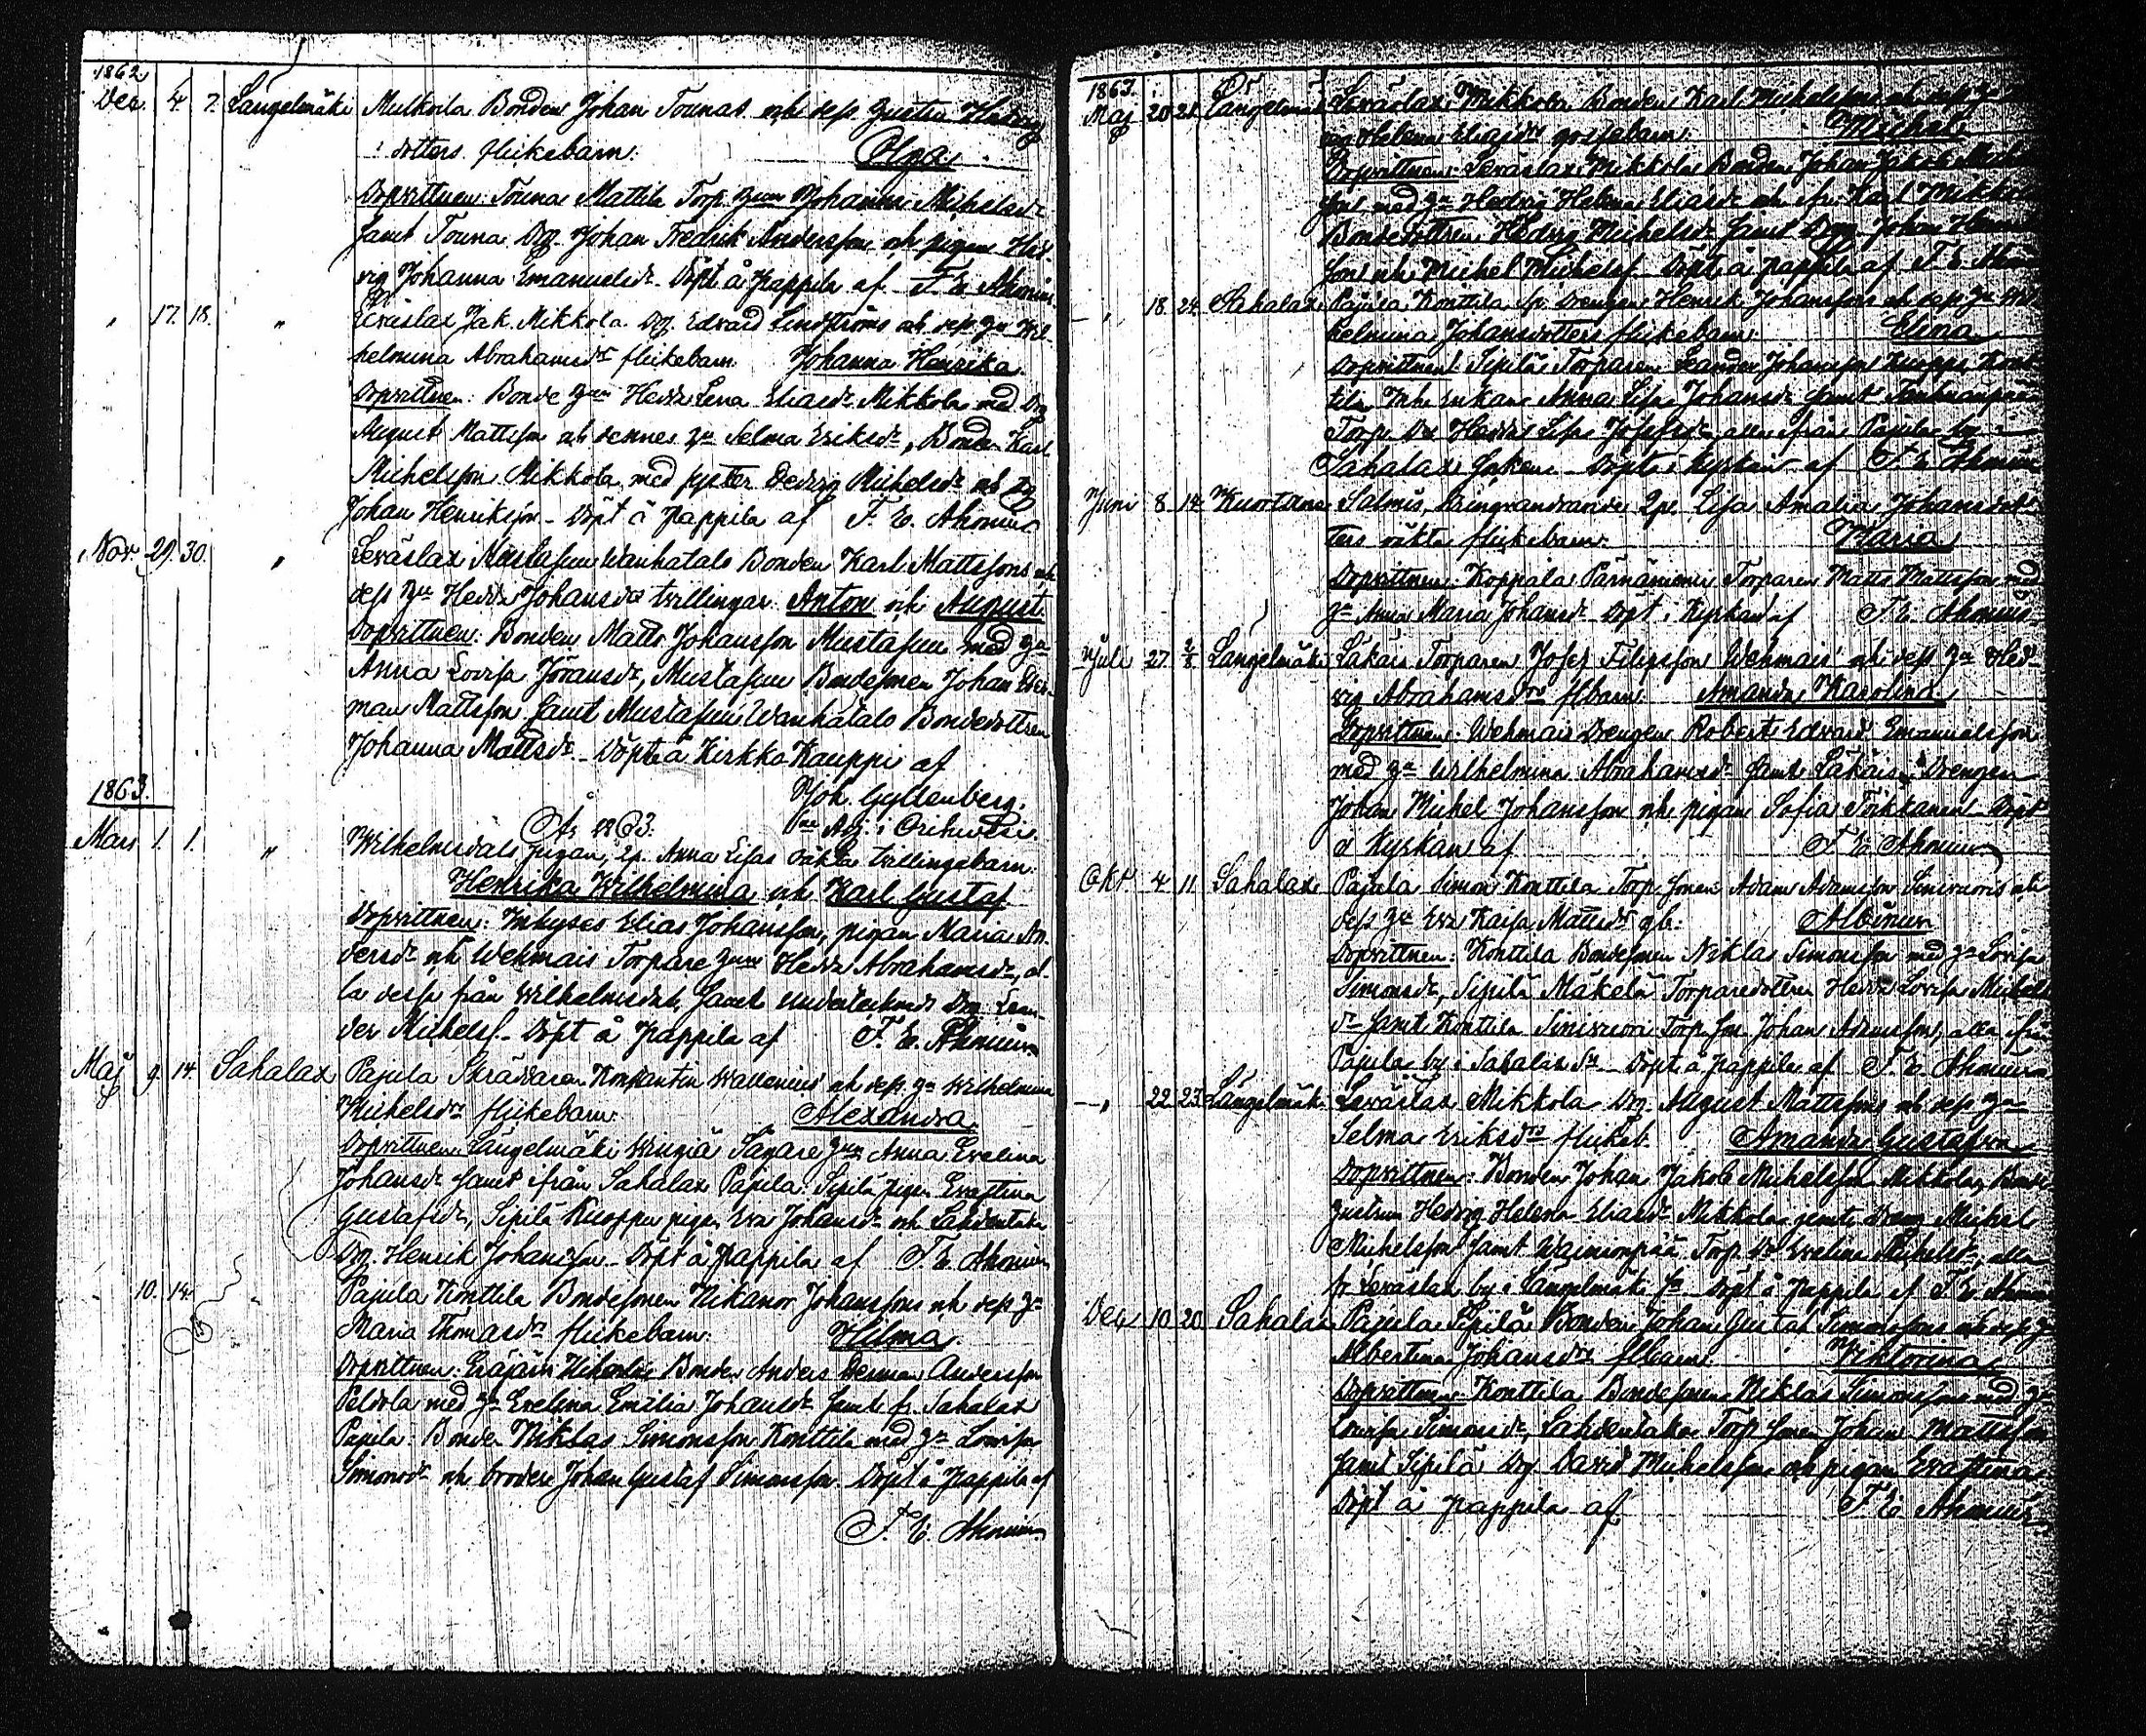 1862
Dec. 4. 7. Längelmäki Mulkoila Bonden Johan Tounas och dess Hustru
dotters flickebarn. Olga.
Dopvittnen: Touna Mattila Torp. Johanna Michelsdr
samt Touna Drg. Johan Fredrik Andersson och pigan Hed-
vig Johanna Emanuelsdr. Döpt å Pappila af F. E. Ahonius.
" 17. 18. " Leväslax Jak. Mikkola Drg. Edvard Lindströms och dess hu Wil-
helmina Abrahamsdrs flickebarn. Johanna Henrika.
Dopvittnen: Bonde Hedda Lena Eliasdr Mikkola med Drg
August Mattsson och dennes hu Selma Eriksdr, Bonden Karl
Michelsson Mikkola med syster Hedvig Michelsdr och Drg
Johan Henriksson. Döpt å Pappila af F. E. Ahonius
Nov. 29. 30. " Leväslax Mustasuu Wanhatalo Bonden Karl Mattssons och
dess hu Hedda Johansdrs tvillingar. Anton och August.
Dopvittnen: Bonden Matts Johansson Mustasuu med hu
Anna Lovisa Jöransdr, Mustasuu Bondesonen Johan
man Mattsson samt Mustasuu Wanhatalo Bondedottren
Johanna Mattsdr. Döpte å Kirkko Kauppi af
Joh. Gyllenberg.
Adj. i Orihvesi.
1863.
År 1863.
Mars 1. 1. " Wilhelmsdals pigan, Anna Lisas oäkta tvillingebarn.
Henrika Wilhelmina och Karl Gustaf
Dopvittnen: Inhyses Elias Johansson, pigan Maria An-
dersdr och Wehmais Torpare Hedda Abrahamsdr, al-
la dessa från Wilhelmsdal, samt undertecknad Drg Lean-
der Michelss. Döpt å Pappila af F. E. Ahonius
Maj 9. 14. Sahalax Pajula Skräddaren Konstantin Wallenius och dess hu Wilhelmina
Michelsdrs flickebarn. Alexandra.
Dopvittnen: Längelmäki Anna Evelina
Johansdr samt ifrån Sahalax Pajula: Sipilä pigan Eva Stina
Gustafsdr, Sipilä Kuoppa pigan Eva Johansdr och Lahdentaka
Drg. Henrik Johansson. Döpt å Pappila af F. E. Ahonius
10. 14. " Pajula Konttila Bondesonen Nikanor Johanssons och dess hu
Maria Thomasdrs flickebarn. Hilma.
Dopvittnen: Eräjärvi Bonden Anders Herman Andersson
Peldola med hu Evelina Emilia Johansdr samt fr. Sahalax
Pajula: Bonden Niklas Simonsson Konttila med hu Lovisa
Simonsdr och brodern Johan Gustaf Simonsson. Döpt å Pappila af
F. E. Ahonius
1863.
Maj 20 21 Längelmäki Leväslax Mikkola Bonden Karl Michelssons och dess hu
Helena Eliasdrs gossebarn. Michel
Dopvittnen: Leväslax Mikkola Bonden Johan Jakob
son med hu Hedvig Helena Eliasdr och fr. Karl Mikkola
Bondedottren Hedvig Michelsdr samt Drgg. Johan
son och Michel Michelss. Döpt å Pappila af F. E.
" 18 24 Sahalax Pajula Konttila Drengen Henrik Johanssons och dess hu Wil-
helmina Johansdotters flickebarn. Elina
Dopvittnen: Sipilä Torparen Leander Johansson Kuoppa, Kont-
tila Inh. Enkan Anna Lisa Johansdr samt
Torp. Dr Hedvig Lisa Josefsdr, alla ifrån Pajula by i
Sahalax socken. Döpt i kyrkan af F. E. Ahonius
Juni 8 14 Kuortane Salmis, Kringvandrande Lisa Amalia Johansdot-
ters oäkta flickebarn. Maria
Dopvittnen: Koppala Pärnäniemi Torparen Matts Mattsson med
hu Anna Maria Johansdr. Döpt i Kyrkan af F. E. Ahonius
Juli 27 2/8 Längelmäki Läkäis Torparen Josef Filipsson Wehmais och dess hu Hed-
vig Abrahamsdrs flbarn. Amanda Karolina
Dopvittnen: Wehmais Drengen Robert Edvard Emanuelsson
med hu Wilhelmina Abrahamsdr samt Läkäis Drengen
Johan Michel Johansson och pigan Sofia Tirkkanen. Döpt
i Kyrkan af F. E. Ahonius
Okt 4 11 Sahalax Pajula Simon Konttila Torp. sonen Adam Adamsson Sinivuoris och
dess hu Eva Kaisa Mattsdrs gb. Albinus
Dopvittnen: Konttila Bondesonen Niklas Simonsson med hu Lovisa
Simonsdr, Sipilä Mäkelä Torparedottren Hedda Lovisa Michels-
dr samt Konttila Sinivuori Torp. son Johan Adamsson, alla ifrån
Pajula by i Sahalax Sn. Döpt å Pappila af F. E. Ahonius
" 22 23 Längelmäki Leväslax Mikkola Drg. August Mattssons och dess hu
Selma Eriksdrs flickeb. Amanda Gustafva
Dopvittnen: Bonden Johan Jakob Michelsson Mikkola, Bonde
hustrun Hedvig Helena Eliasdr Mikkola jemte Dreng Michel
Michelsson samt Torp. Dr Evelina Michelsdr, alla
fr. Leväslax by i Längelmäki Sn. Döpt å Pappila af F. E. Ahonius
Dec. 10 20 Sahalax Pajula Sipilä Bonden Johan Gustaf Simonssons och dess hu
Albertina Johansdrs flbarn. Viktorina
Dopvittnen: Konttila Bondesonen Niklas Simonsson med hu
Lovisa Simonsdr, Lahdentaka Torp. sonen Johan Mattsson
samt Sipilä Drg. David Michelsson och pigan Eva Stina
Döpt å Pappila af F. E. Ahonius